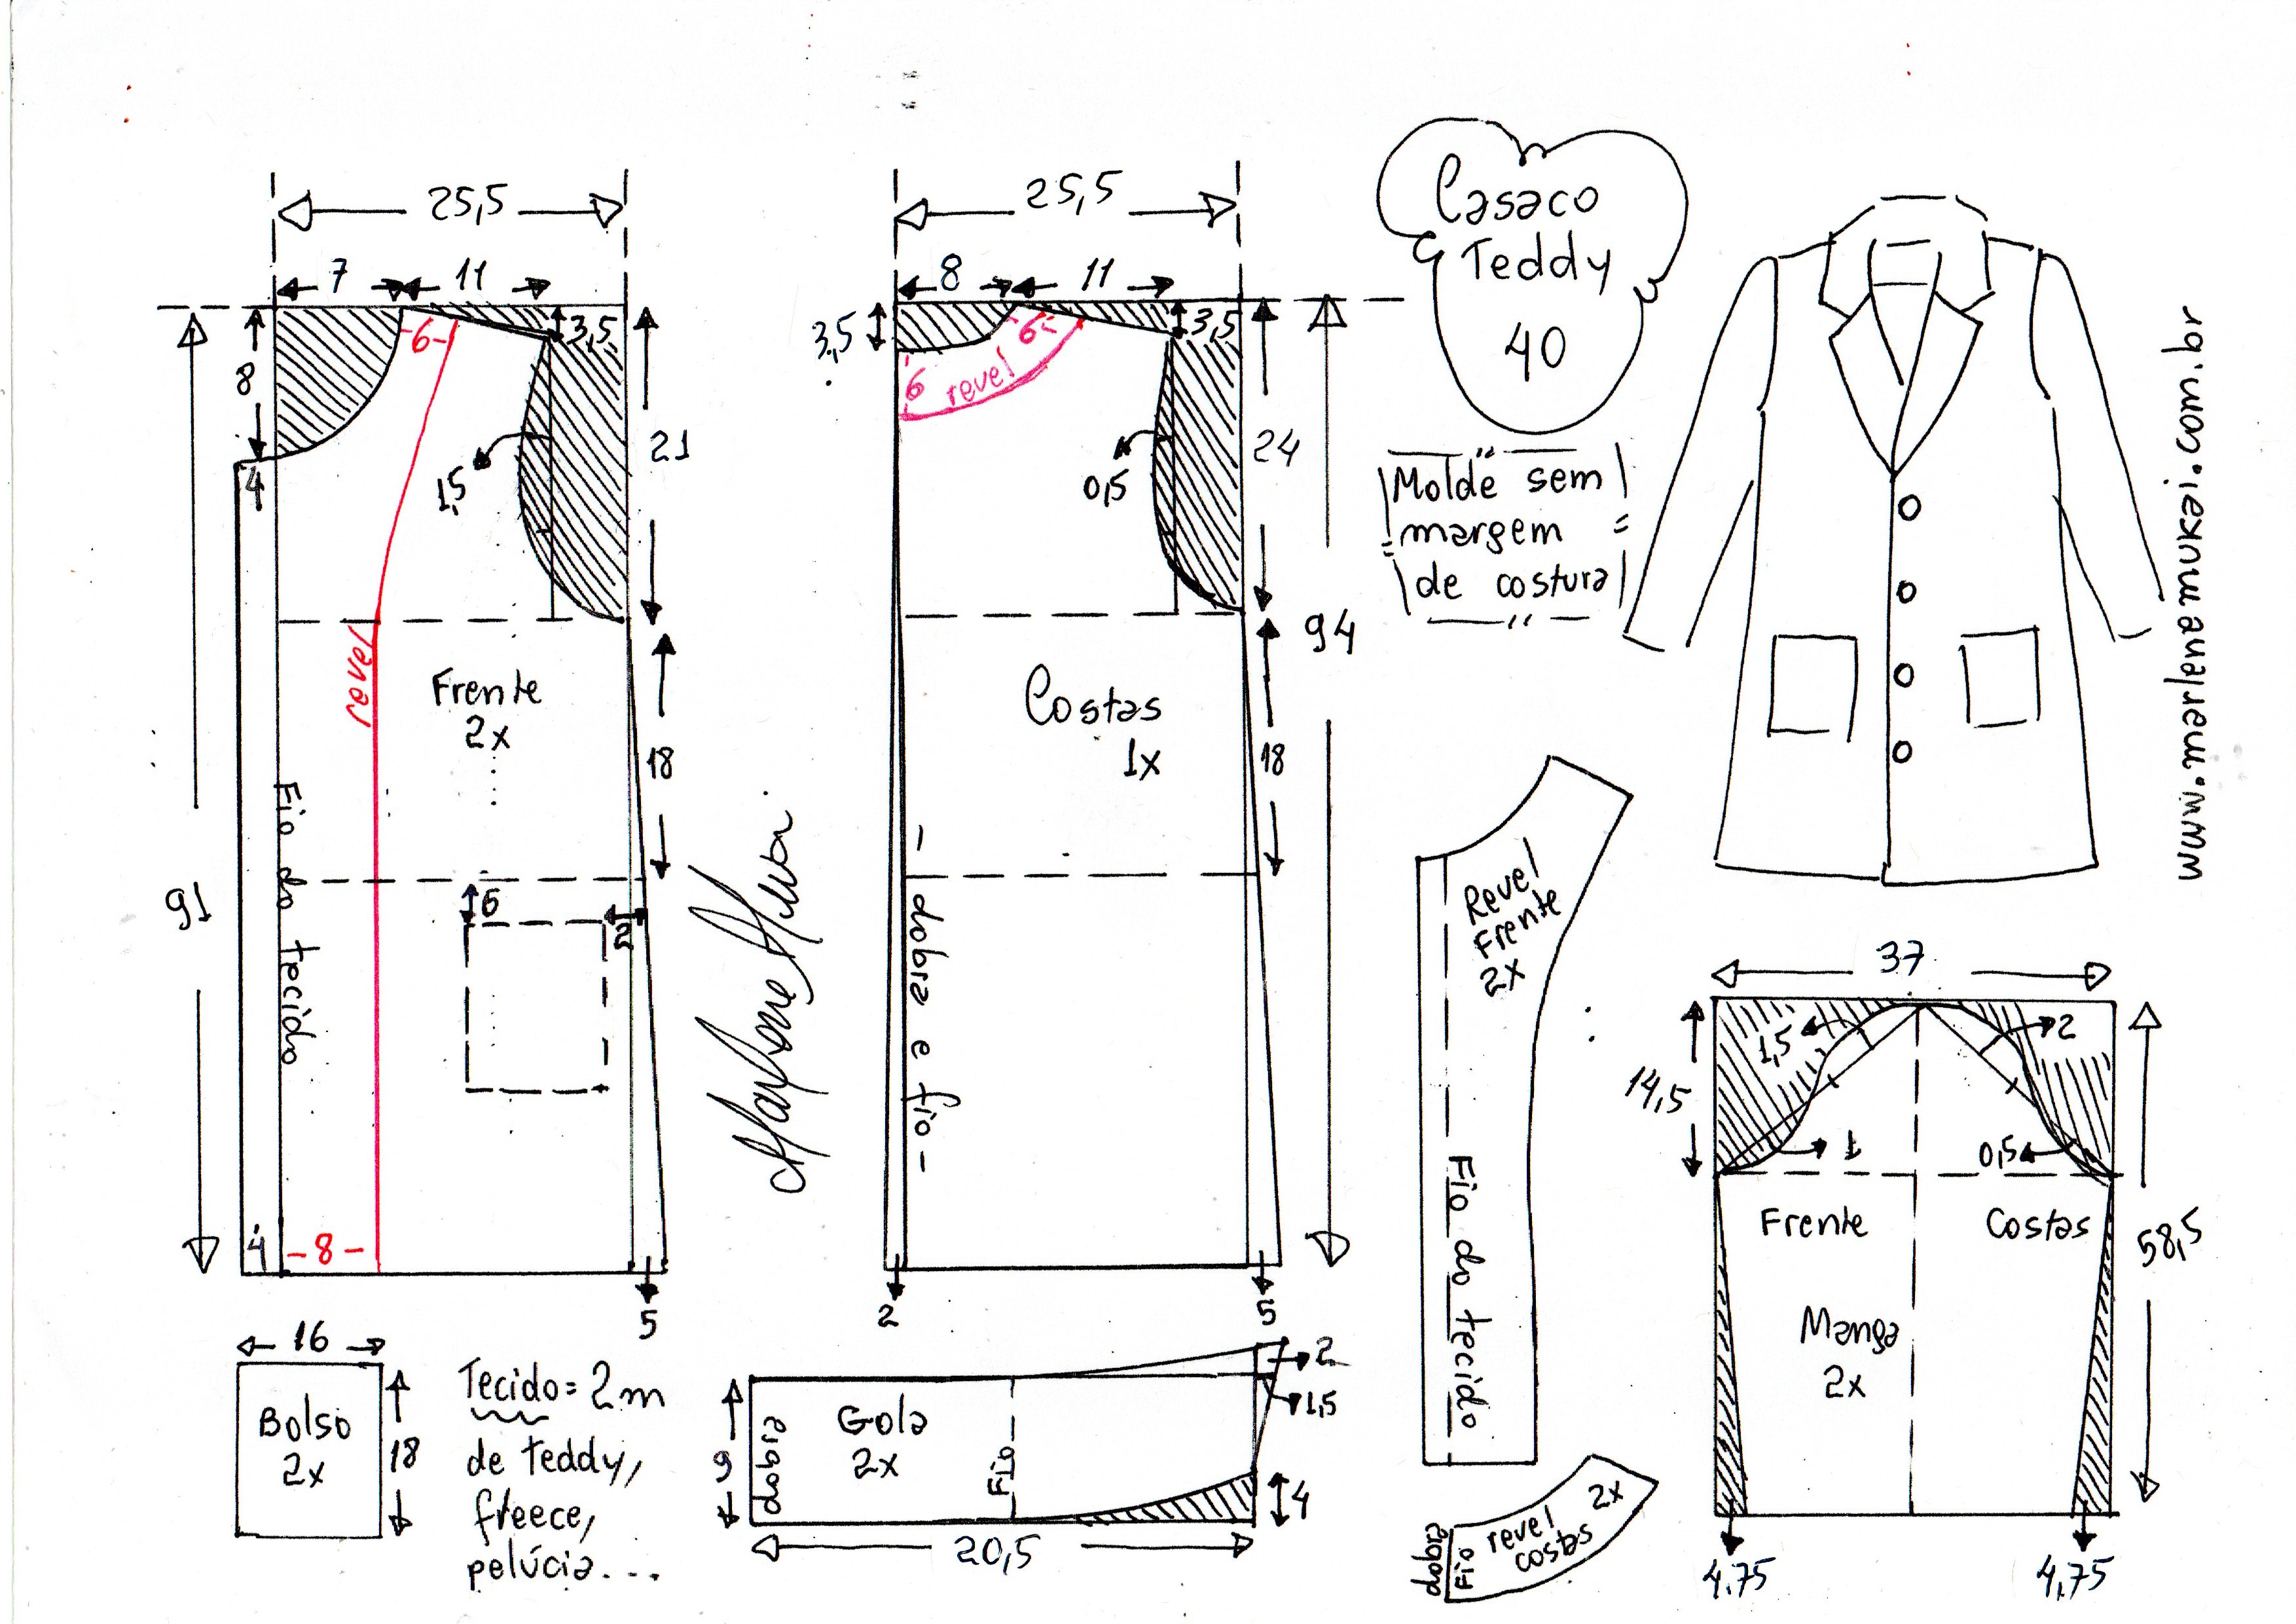 25,5
7
11
3,5
8
4
6
1,5
21
revel
Frente
2x
18
Fio do tecido
91
6
2
4
8
5
25,5
8
11
3,5
3,5
6
6
revel
0,5
24
94
Costas
1x
18
dobra e fio
2
5
Casaco
Teddy
40
Molde sem
margem
de costura
www.marlenemukai.com.br
Revel
Frente
2x
Fio do tecido
37
14,5
1,5
2
1
0,5
Frente
Costas
58,5
Manga
2x
4,75
4,75
16
Bolso
2x
18
Tecido = 2m
de teddy,
freece,
pelúcia...
9
dobra
Gola
2x
Fio
2
1,5
4
20,5
dobra
Fio
revel
costas
2x